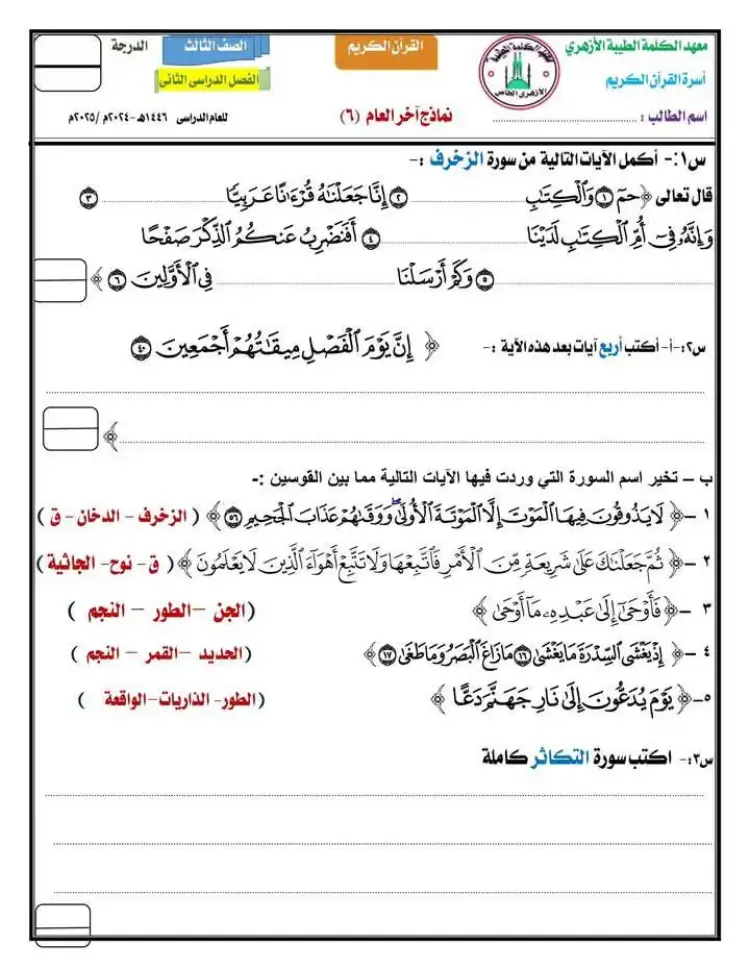 معهد الكلمة الطيبة الأزهري
أسرة القرآن الكريم
اسم الطالب : ........................
القرآن الكريم
نماذج آخر العام (٦)
الصف الثالث
الدرجة
الفصل الدراسى الثانى
للعام الدراسى ١٤٤٦هـ -٢٠٢٤م /٢٠٢٥م
س١:- أكمل الآيات التالية من سورة الزخرف :-
قال تعالى ﴿حمٓ ١ وَٱلۡكِتَٰبِ ........................ ٢ إِنَّا جَعَلۡنَٰهُ قُرۡءَٰنًا عَرَبِيّٗا ........................ ٣
وَإِنَّهُۥ فِيٓ أُمِّ ٱلۡكِتَٰبِ لَدَيۡنَا ........................ ٤ أَفَنَضۡرِبُ عَنكُمُ ٱلذِّكۡرَ صَفۡحًا
........................ ٥ وَكَمۡ أَرۡسَلۡنَا ........................ فِي ٱلۡأَوَّلِينَ ٦ ﴾
س٢:-أ- أكتب أربع آيات بعد هذه الآية :- ﴿ إِنَّ يَوۡمَ ٱلۡفَصۡلِ مِيقَٰتُهُمۡ أَجۡمَعِينَ ٤٠
........................
........................ ﴾
ب – تخير اسم السورة التي وردت فيها الآيات التالية مما بين القوسين :-
١ -﴿ لَا يَذُوقُونَ فِيهَا ٱلۡمَوۡتَ إِلَّا ٱلۡمَوۡتَةَ ٱلۡأُولَىٰۖ وَوَقَىٰهُمۡ عَذَابَ ٱلۡجَحِيمِ ٥٦ ﴾ ( الزخرف - الدخان - ق )
٢ -﴿ ثُمَّ جَعَلۡنَٰكَ عَلَىٰ شَرِيعَةٖ مِّنَ ٱلۡأَمۡرِ فَٱتَّبِعۡهَا وَلَا تَتَّبِعۡ أَهۡوَآءَ ٱلَّذِينَ لَا يَعۡلَمُونَ ﴾ ( ق - نوح - الجاثية )
٣ -﴿ فَأَوۡحَىٰٓ إِلَىٰ عَبۡدِهِۦ مَآ أَوۡحَىٰ ﴾ (الجن –الطور – النجم )
٤ -﴿ إِذۡ يَغۡشَى ٱلسِّدۡرَةَ مَا يَغۡشَىٰ ١٦ مَا زَاغَ ٱلۡبَصَرُ وَمَا طَغَىٰ ١٧ ﴾ (الحديد –القمر – النجم )
٥-﴿ يَوۡمَ يُدَعُّونَ إِلَىٰ نَارِ جَهَنَّمَ دَعًّا ﴾ (الطور- الذاريات-الواقعة )
س٣:- اكتب سورة التكاثر كاملة
........................
........................
........................